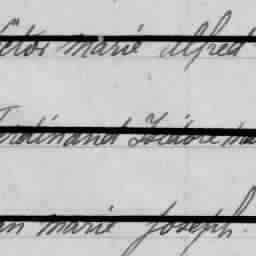 Victor Marie Alfred
Ferdinand Isidore Ma
an Marie Joseph.